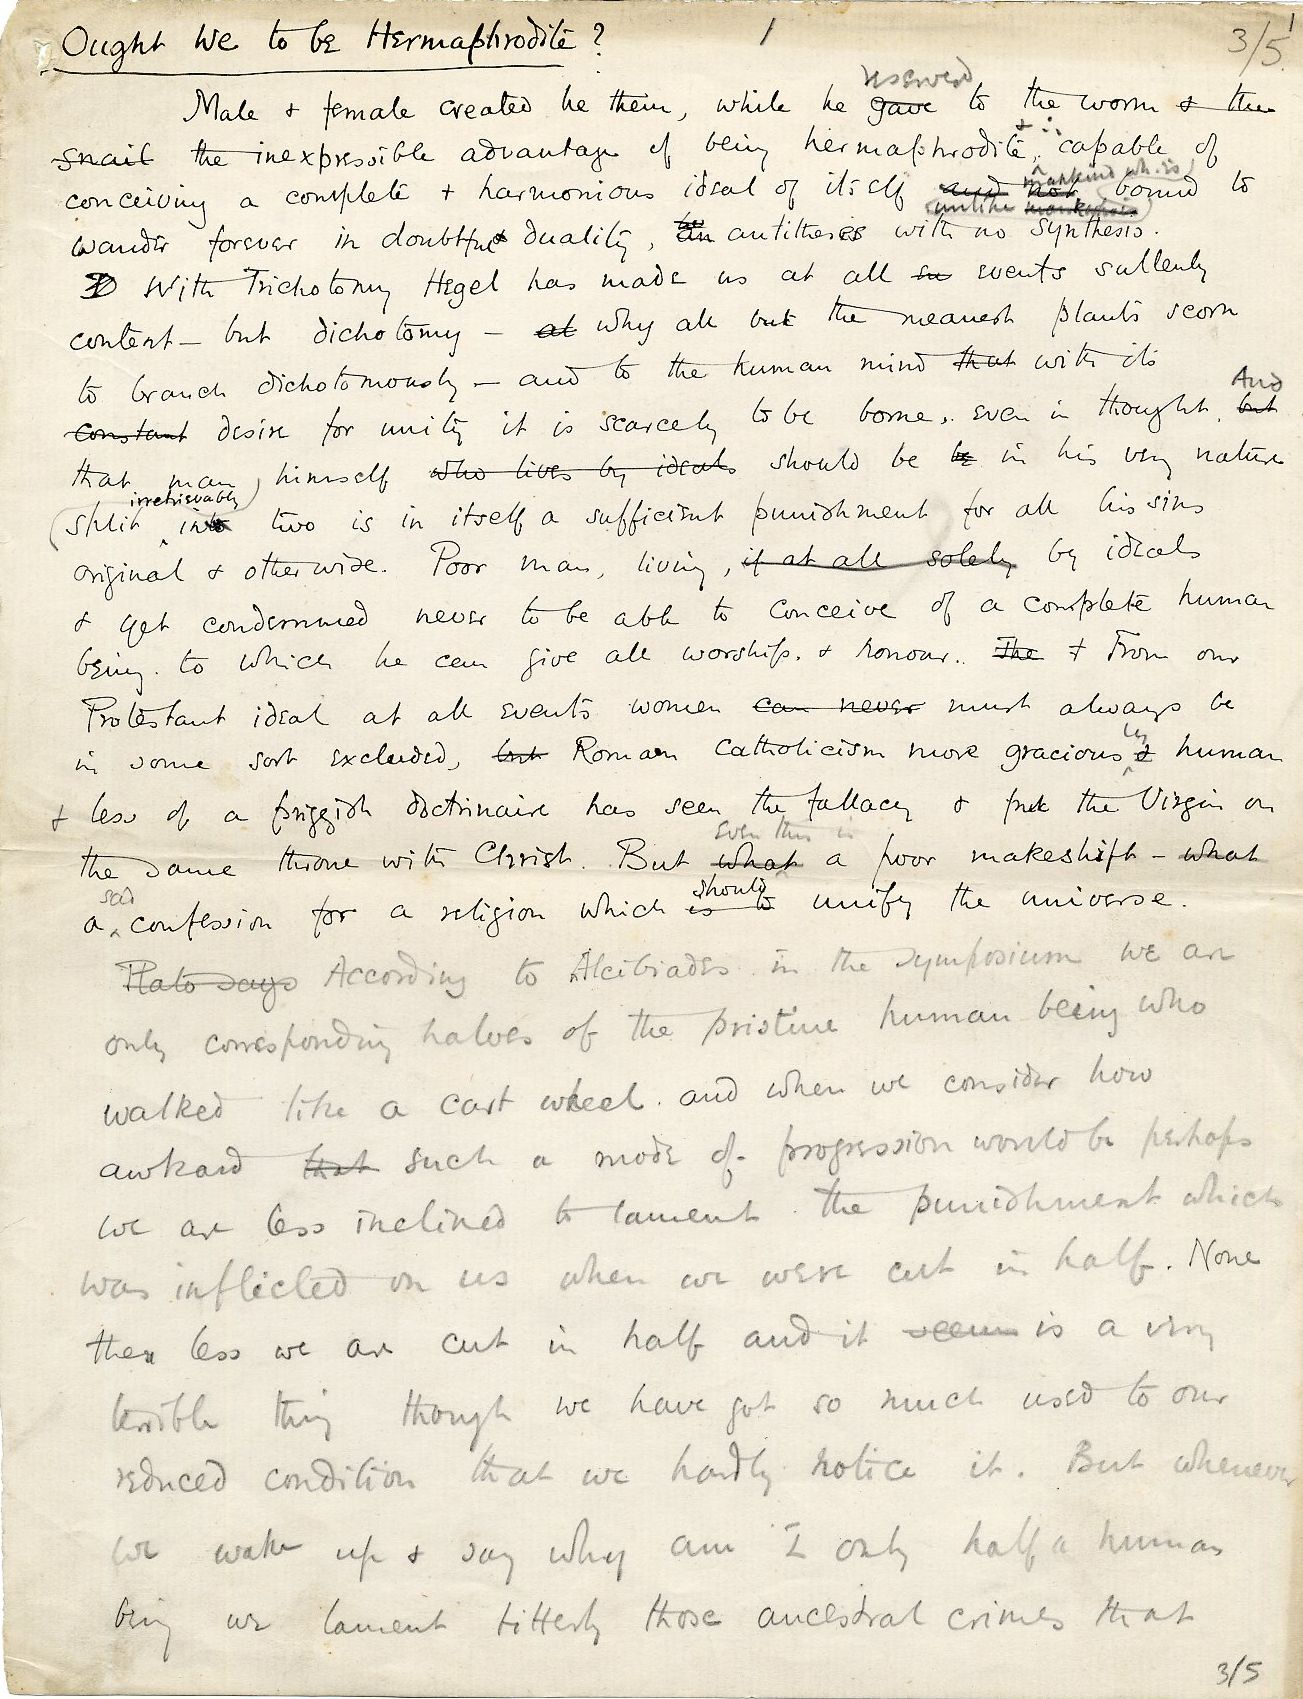 Ought We to be Hermaphrodite? 1 3/5
reserved
Male & female created he them, while he gave to the worm & the
snail the inexpressible advantage of being hermaphrodite, & ∴ capable of
mankind wh. is
conceiving a complete & harmonious ideal of itself and not bound to
(unlike
wander forever in doubtful duality, an antithesis with no synthesis.
With Trichotomy Hegel has made us at all events sullenly
content – but dichotomy – at why all but the meanest plants scorn
to branch dichotomously – and to the human mind that with its
And
constant desire for unity it is scarcely to be borne, even in thought, but
that man, himself who lives by ideals should be in his very nature
irretrievably
split into two is in itself a sufficient punishment for all his sins
original & otherwise. Poor man, living, if at all solely by ideals
& yet condemned never to be able to conceive of a complete human
being to which he can give all worship & honour. The From our
Protestant ideal at all events women can never must always be
ly
in some sort excluded, but Roman Catholicism more gracious & human
& less of a priggish doctrinaire has seen the fallacy & put the Virgin on
Even this is
the same throne with Christ. But what a poor makeshift – what
sad should
a confession for a religion which is to unify the universe.
Plato says According to Alcibiades in the Symposium we are
only corresponding halves of the pristine human being who
walked like a cart wheel and when we consider how
awkard that such a mode of progression would be perhaps
we are less inclined to lament the punishment which
was inflicted on us when we were cut in half. None
the less we are cut in half and it seems is a very
terrible thing though we have got so much used to our
reduced condition that we hardly notice it. But whenever
we wake up & say why am I only half a human
being we lament bitterly those ancestral crimes that
3/5